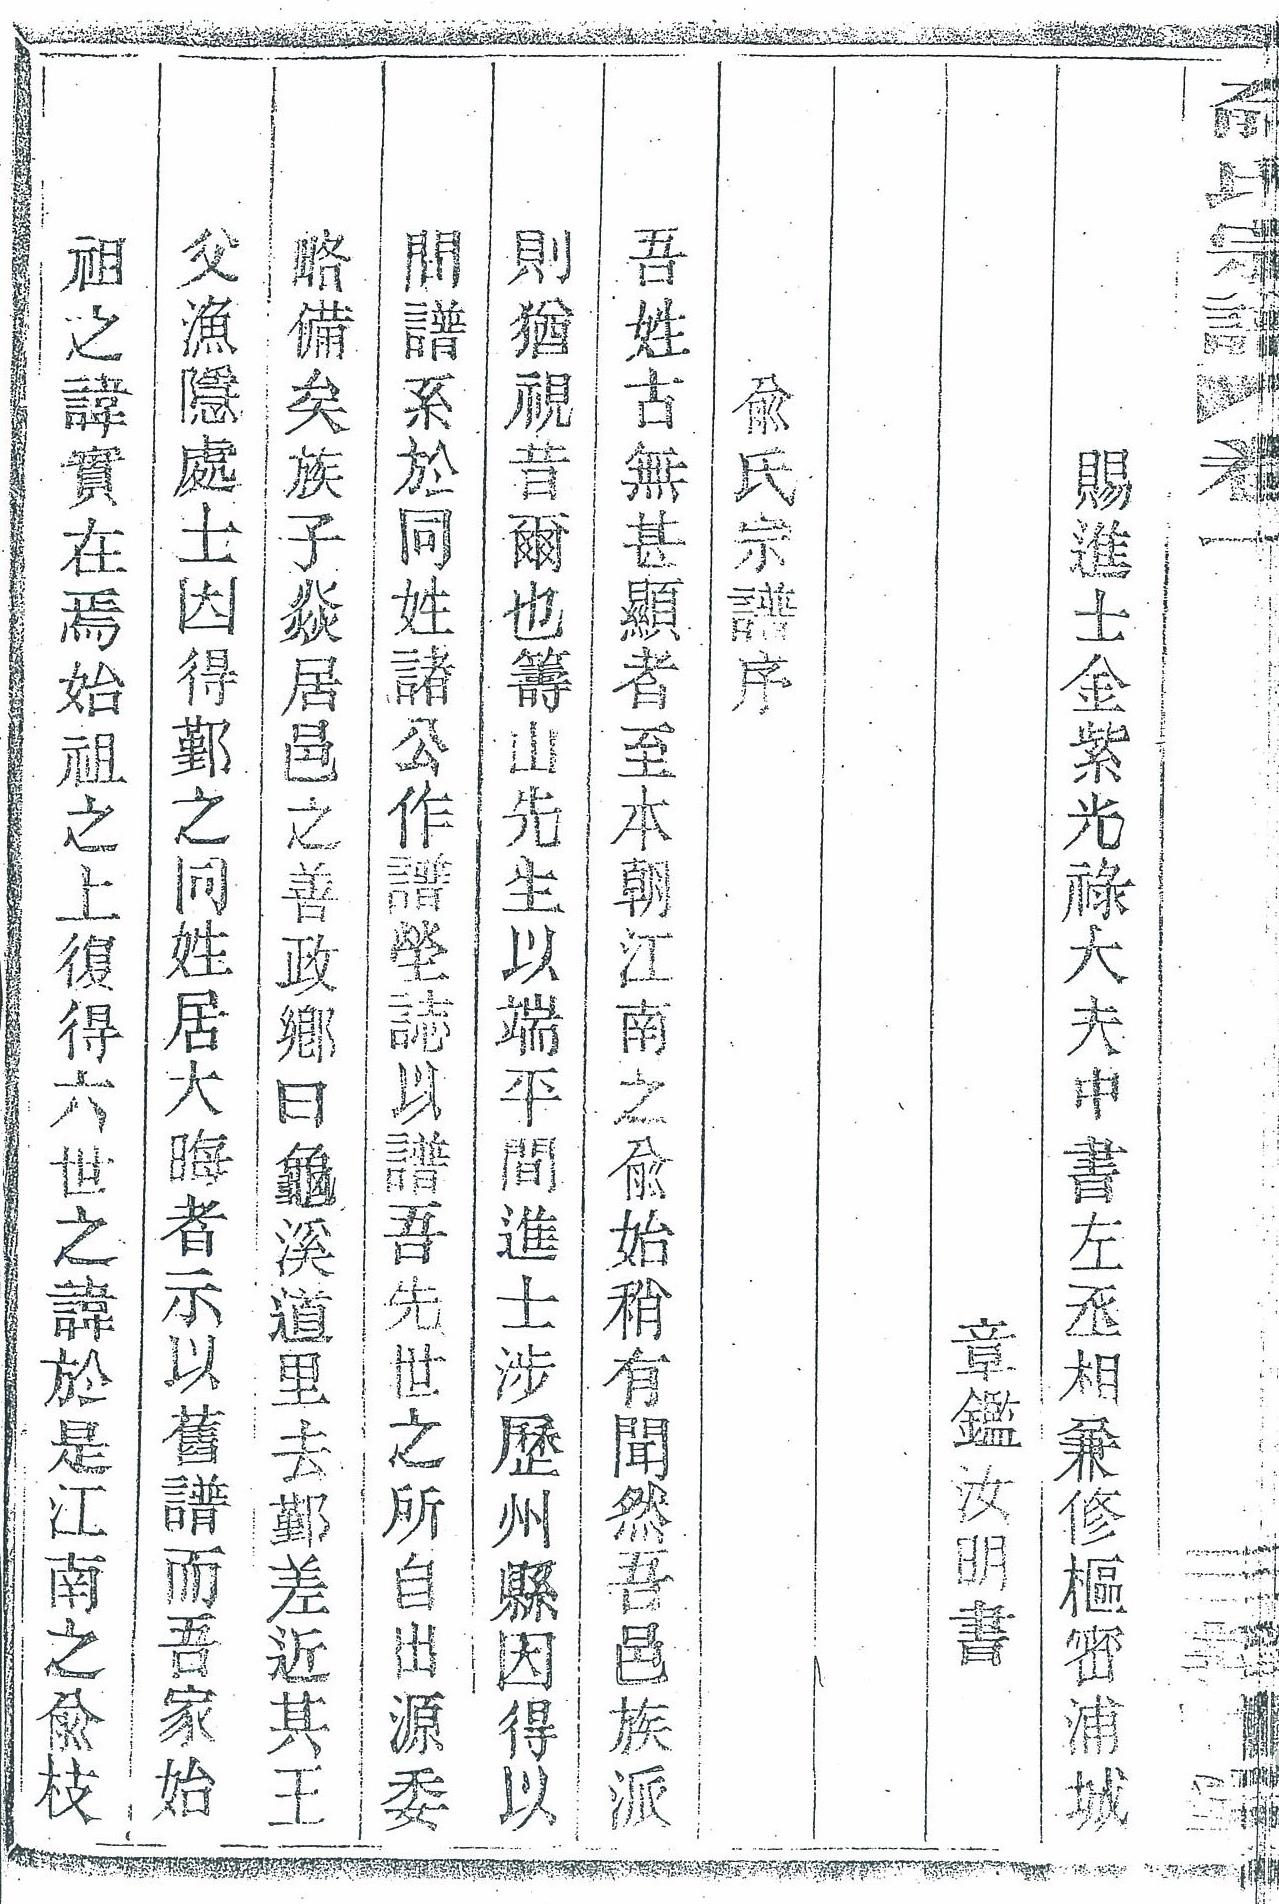 俞氏宗譜 卷一
賜進士金紫光祿大夫中書左丞相兼修樞密浦城
章鑑汝明書
俞氏宗譜序
吾姓古無甚顯者至本朝江南之俞始稍有聞然吾邑族派
則猶視昔爾也籌山先生以端平間進士涉歷州縣因得以
問譜系於同姓諸公作譜塋誌以譜吾先世之所自出源委
略備矣族子焱居邑之善政鄉曰龜溪道里去鄞差近其王
父漁隱處士因得鄞之同姓居大晦者示以舊譜而吾家始
祖之諱實在焉始祖之上復得六世之諱於是江南之俞枝